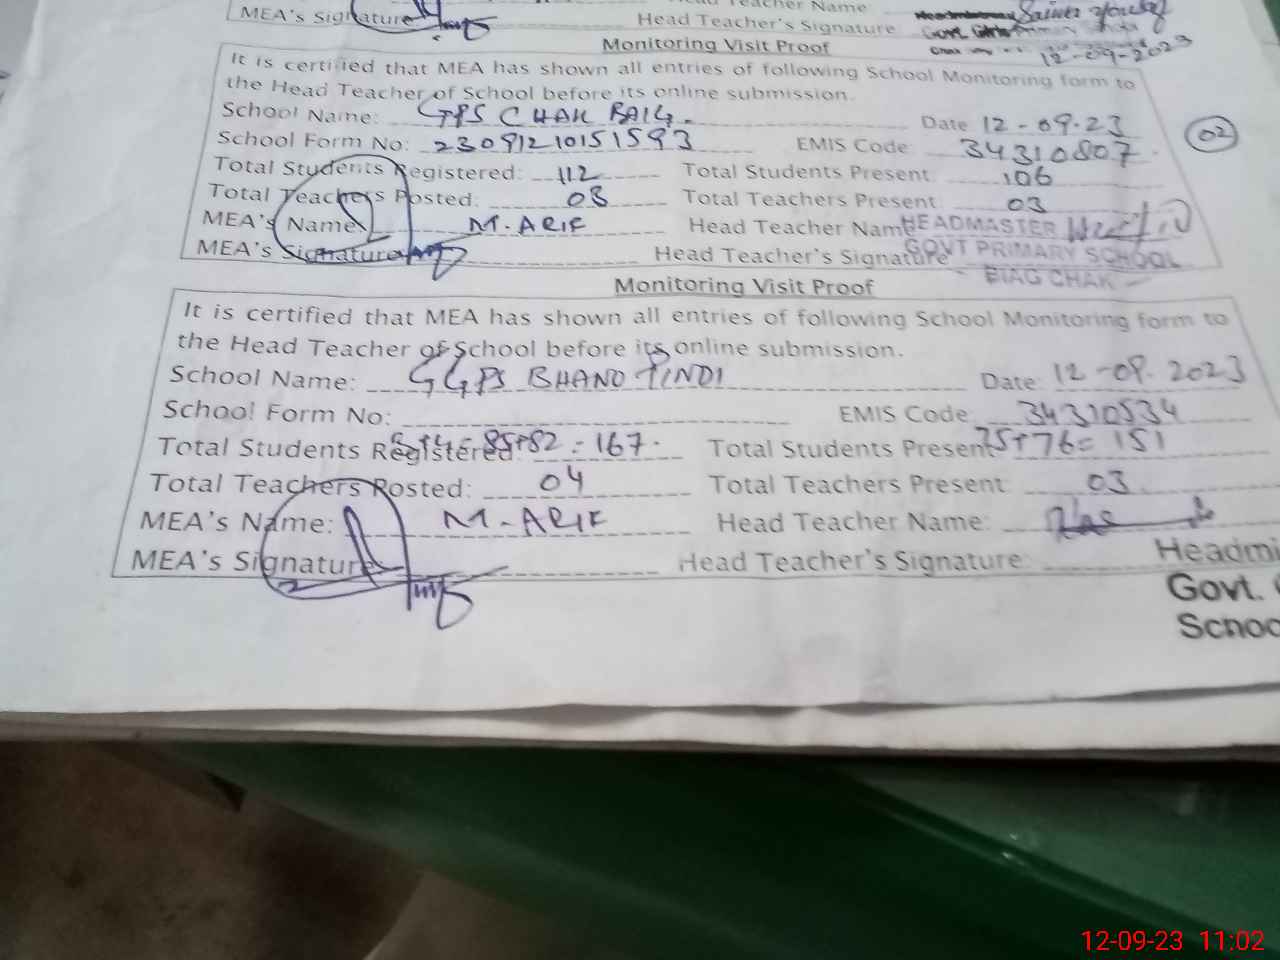 Teacher Name
MEA's Signature Head Teacher's Signature
12-09-2023
Monitoring Visit Proof
It is certified that MEA has shown all entries of following School Monitoring form to
the Head Teacher of School before its online submission.
School Name: GPS CHAK BAIG. Date 12-09-23
School Form No: 2309121015 1593 EMIS Code 34310807
02
Total Students Registered: 112 Total Students Present: 106
Total Teachers Posted: 03 Total Teachers Present: 03
MEA's Name M. ARIF Head Teacher Name HEADMASTER
MEA's Signature Head Teacher's Signature GOVT PRIMARY SCHOOL
BIAG CHAK
Monitoring Visit Proof
It is certified that MEA has shown all entries of following School Monitoring form to
the Head Teacher of School before its online submission.
School Name: GGPS BHANO PINDI Date: 12-09-2023
School Form No: EMIS Code 34310534
Total Students Registered: 85+82 = 167 Total Students Present 75+76= 151
Total Teachers Posted: 04 Total Teachers Present: 03
MEA's Name: M. ARIF Head Teacher Name:
MEA's Signature Head Teacher's Signature:
Headmi
Govt.
Schoo
12-09-23 11:02